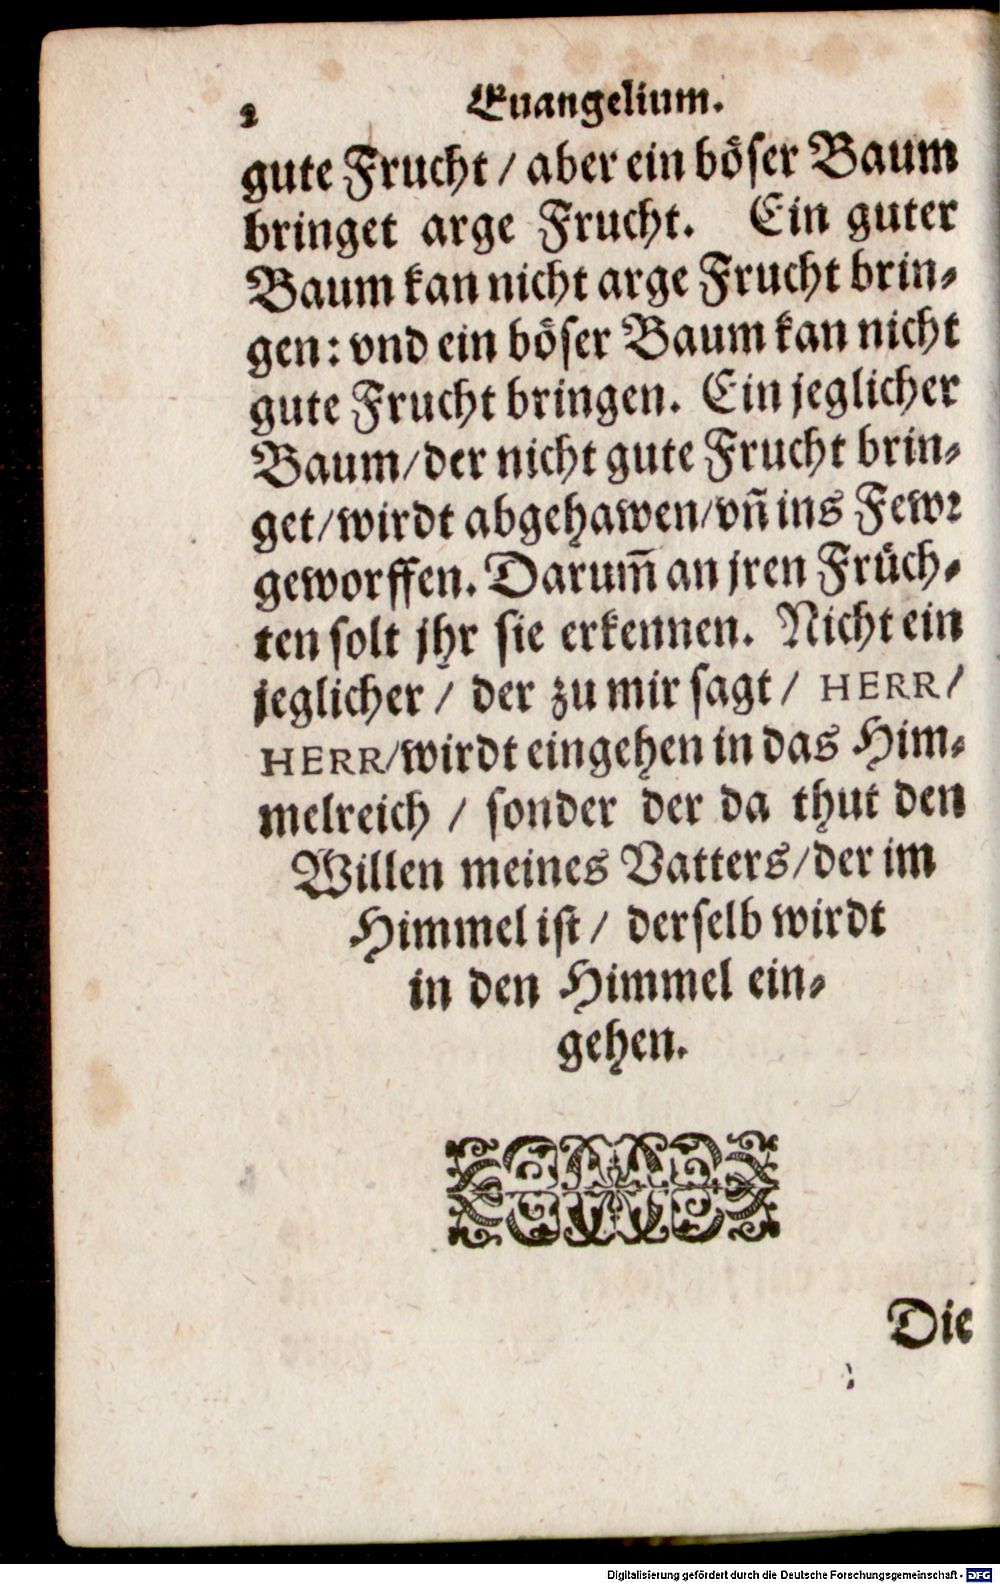 2 Euangelium.
gute Frucht / aber ein böser Baum
bringet arge Frucht. Ein guter
Baum kan nicht arge Frucht brin-
gen: vnd ein böser Baum kan nicht
gute Frucht bringen. Ein jeglicher
Baum/der nicht gute Frucht brin-
get/wirdt abgehawen/vñ ins Fewr
geworffen. Darum̃ an jren Früch-
ten solt jhr sie erkennen. Nicht ein
jeglicher / der zu mir sagt / HERR/
HERR/wirdt eingehen in das Him-
melreich / sonder der da thut den
Willen meines Vatters/der im
Himmel ist / derselb wirdt
in den Himmel ein-
gehen.
Die
Digitalisierung gefördert durch die Deutsche Forschungsgemeinschaft - DFG